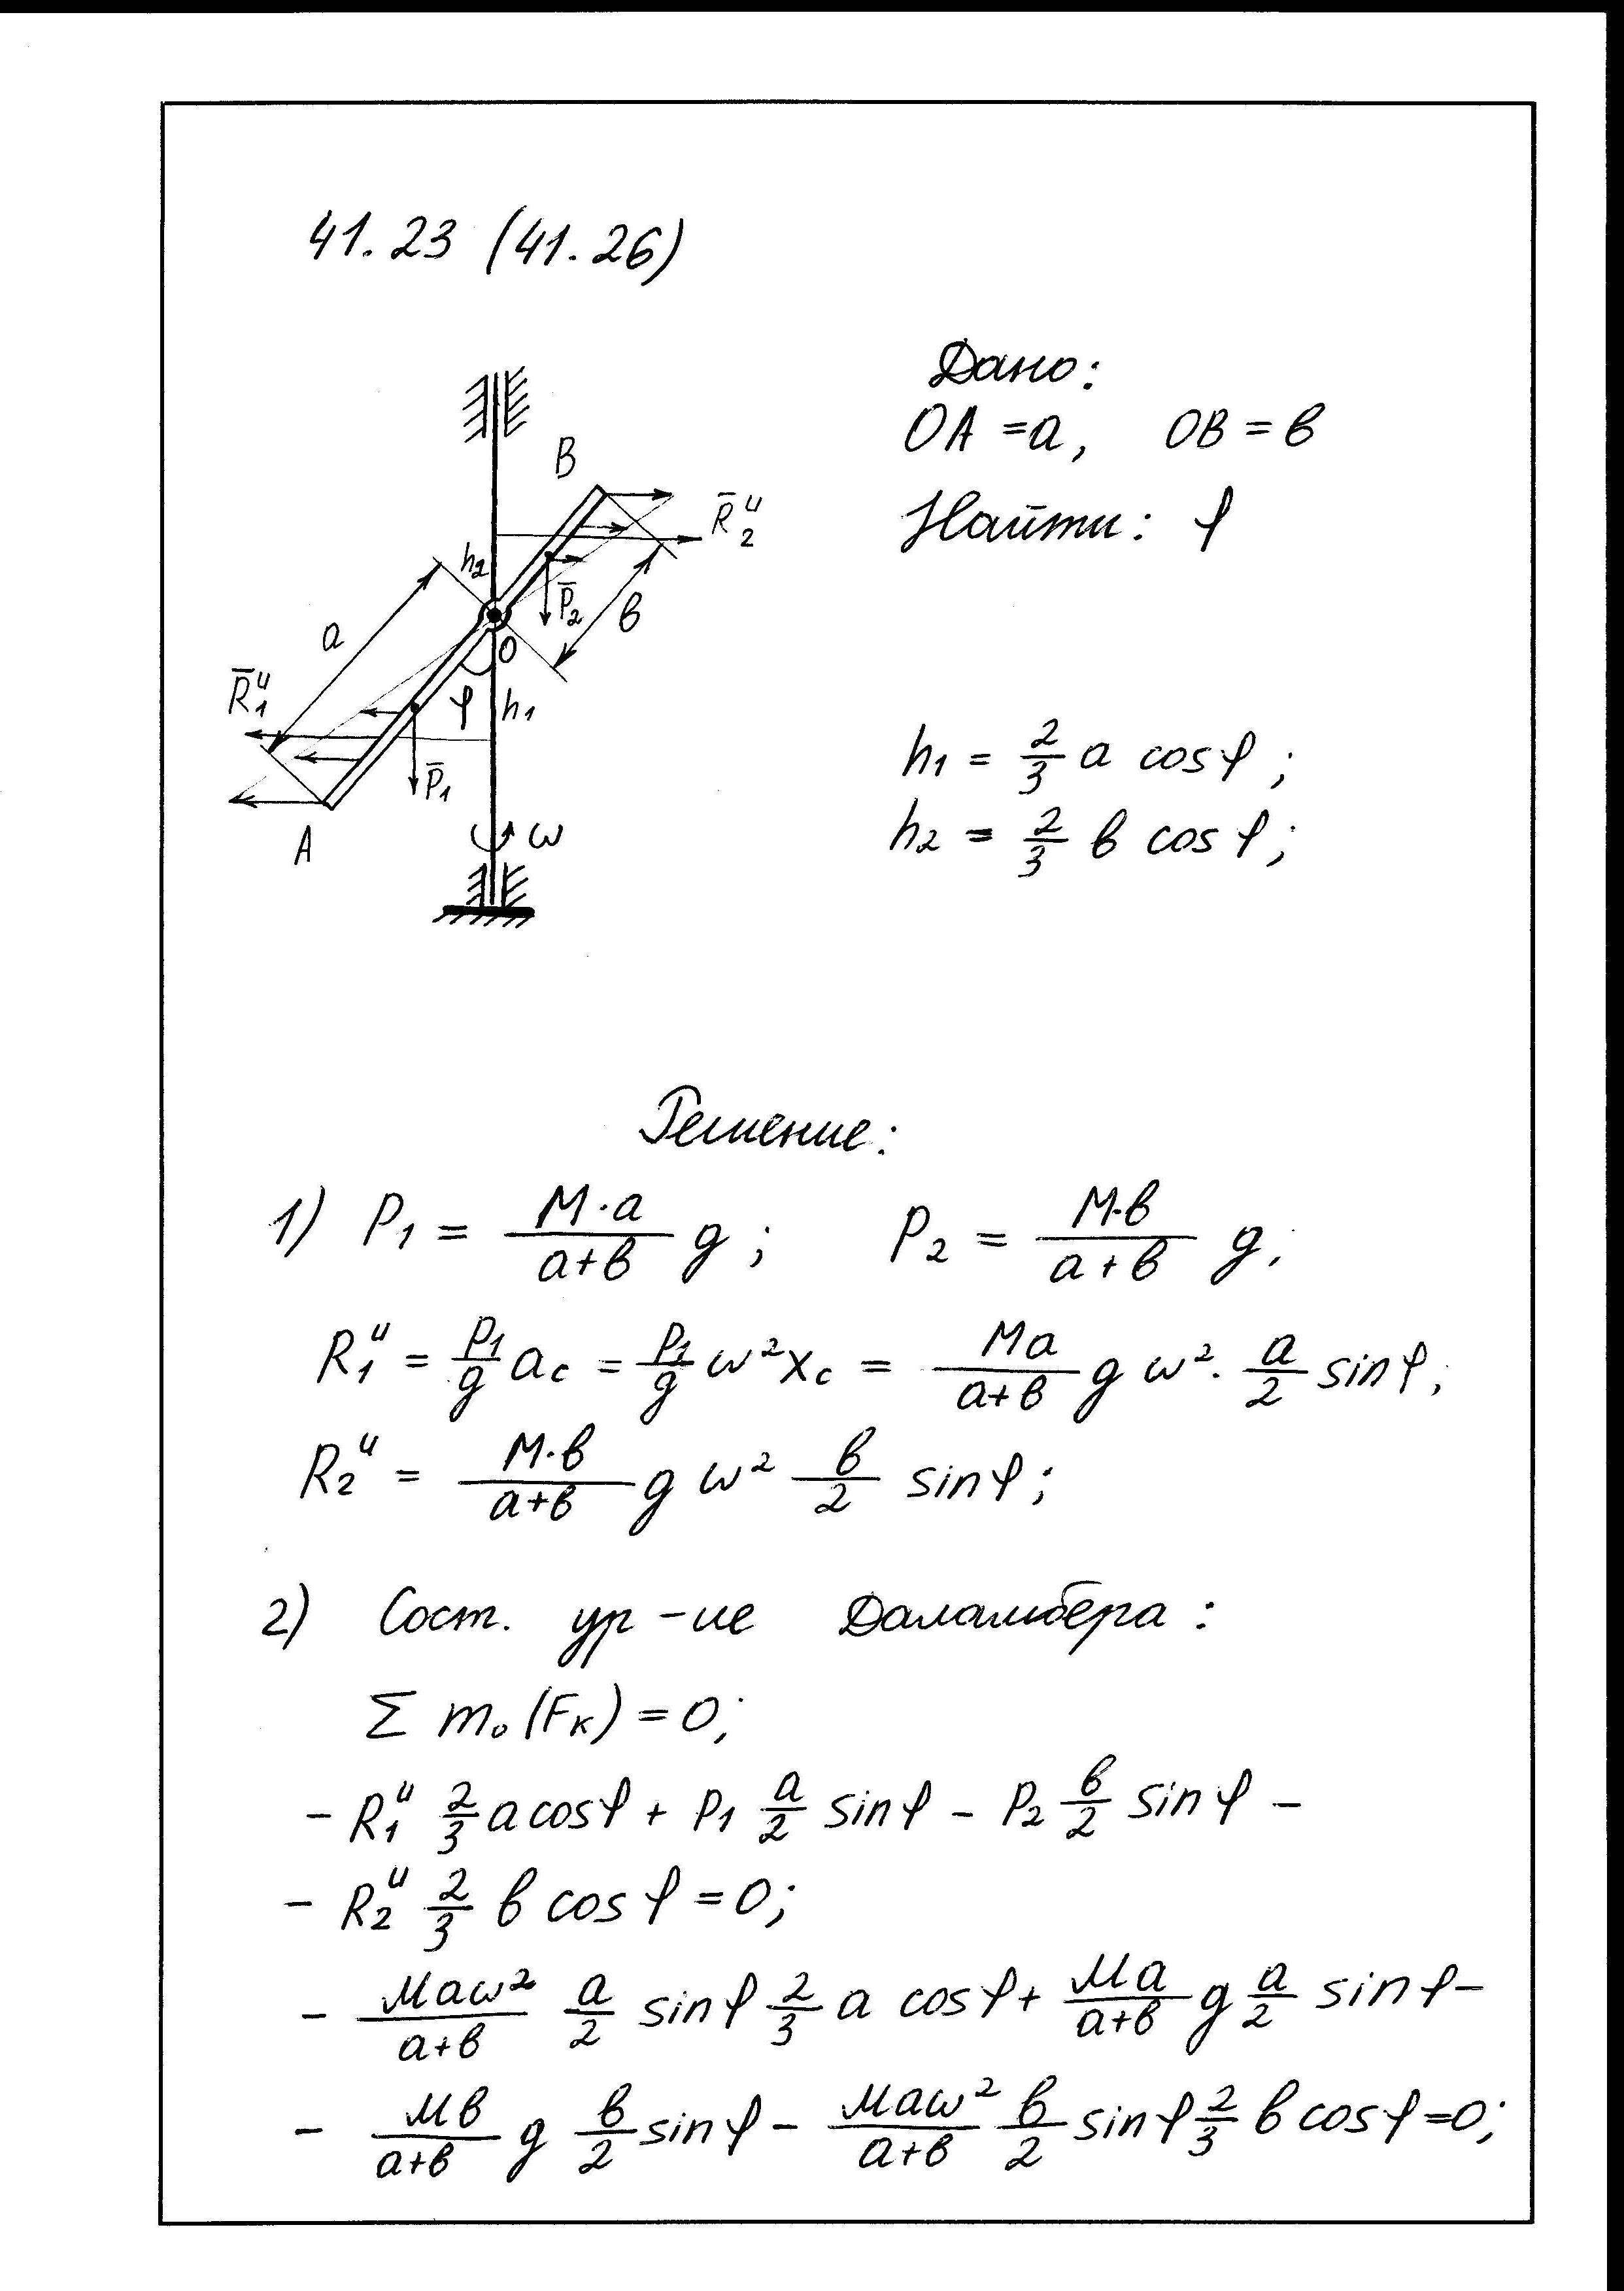 41.23 (41.26)
Дано:
OA = a, OB = в
Найти: φ
B
R̄₂ᵘ
h₂
P̄₂
в
a
O
R̄₁ᵘ
φ
h₁
P̄₁
A
ω
h₁ = 2/3 a cosφ;
h₂ = 2/3 в cosφ;
Решение:
1) P₁ = M·a/(a+в) g; P₂ = M·в/(a+в) g.
R₁ᵘ = P₁/g a_c = P₁/g ω²x_c = Ma/(a+в) g ω² · a/2 sinφ;
R₂ᵘ = M·в/(a+в) g ω² в/2 sinφ;
2) Сост. ур-ие Даламбера:
Σ m₀(Fк) = 0;
- R₁ᵘ 2/3 a cosφ + P₁ a/2 sinφ - P₂ в/2 sinφ -
- R₂ᵘ 2/3 в cosφ = 0;
- Maω²/(a+в) a/2 sinφ 2/3 a cosφ + Ma/(a+в) g a/2 sinφ -
- Mв/(a+в) g в/2 sinφ - Maω²/(a+в) в/2 sinφ 2/3 в cosφ = 0;